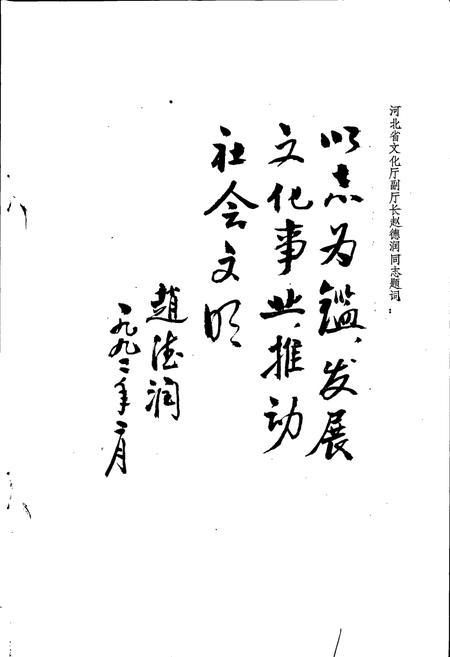 河北省文化厅副厅长赵德润同志题词：
以志为鑑，发展
文化事业，推动
社会文明
趙德润
一九九二年二月